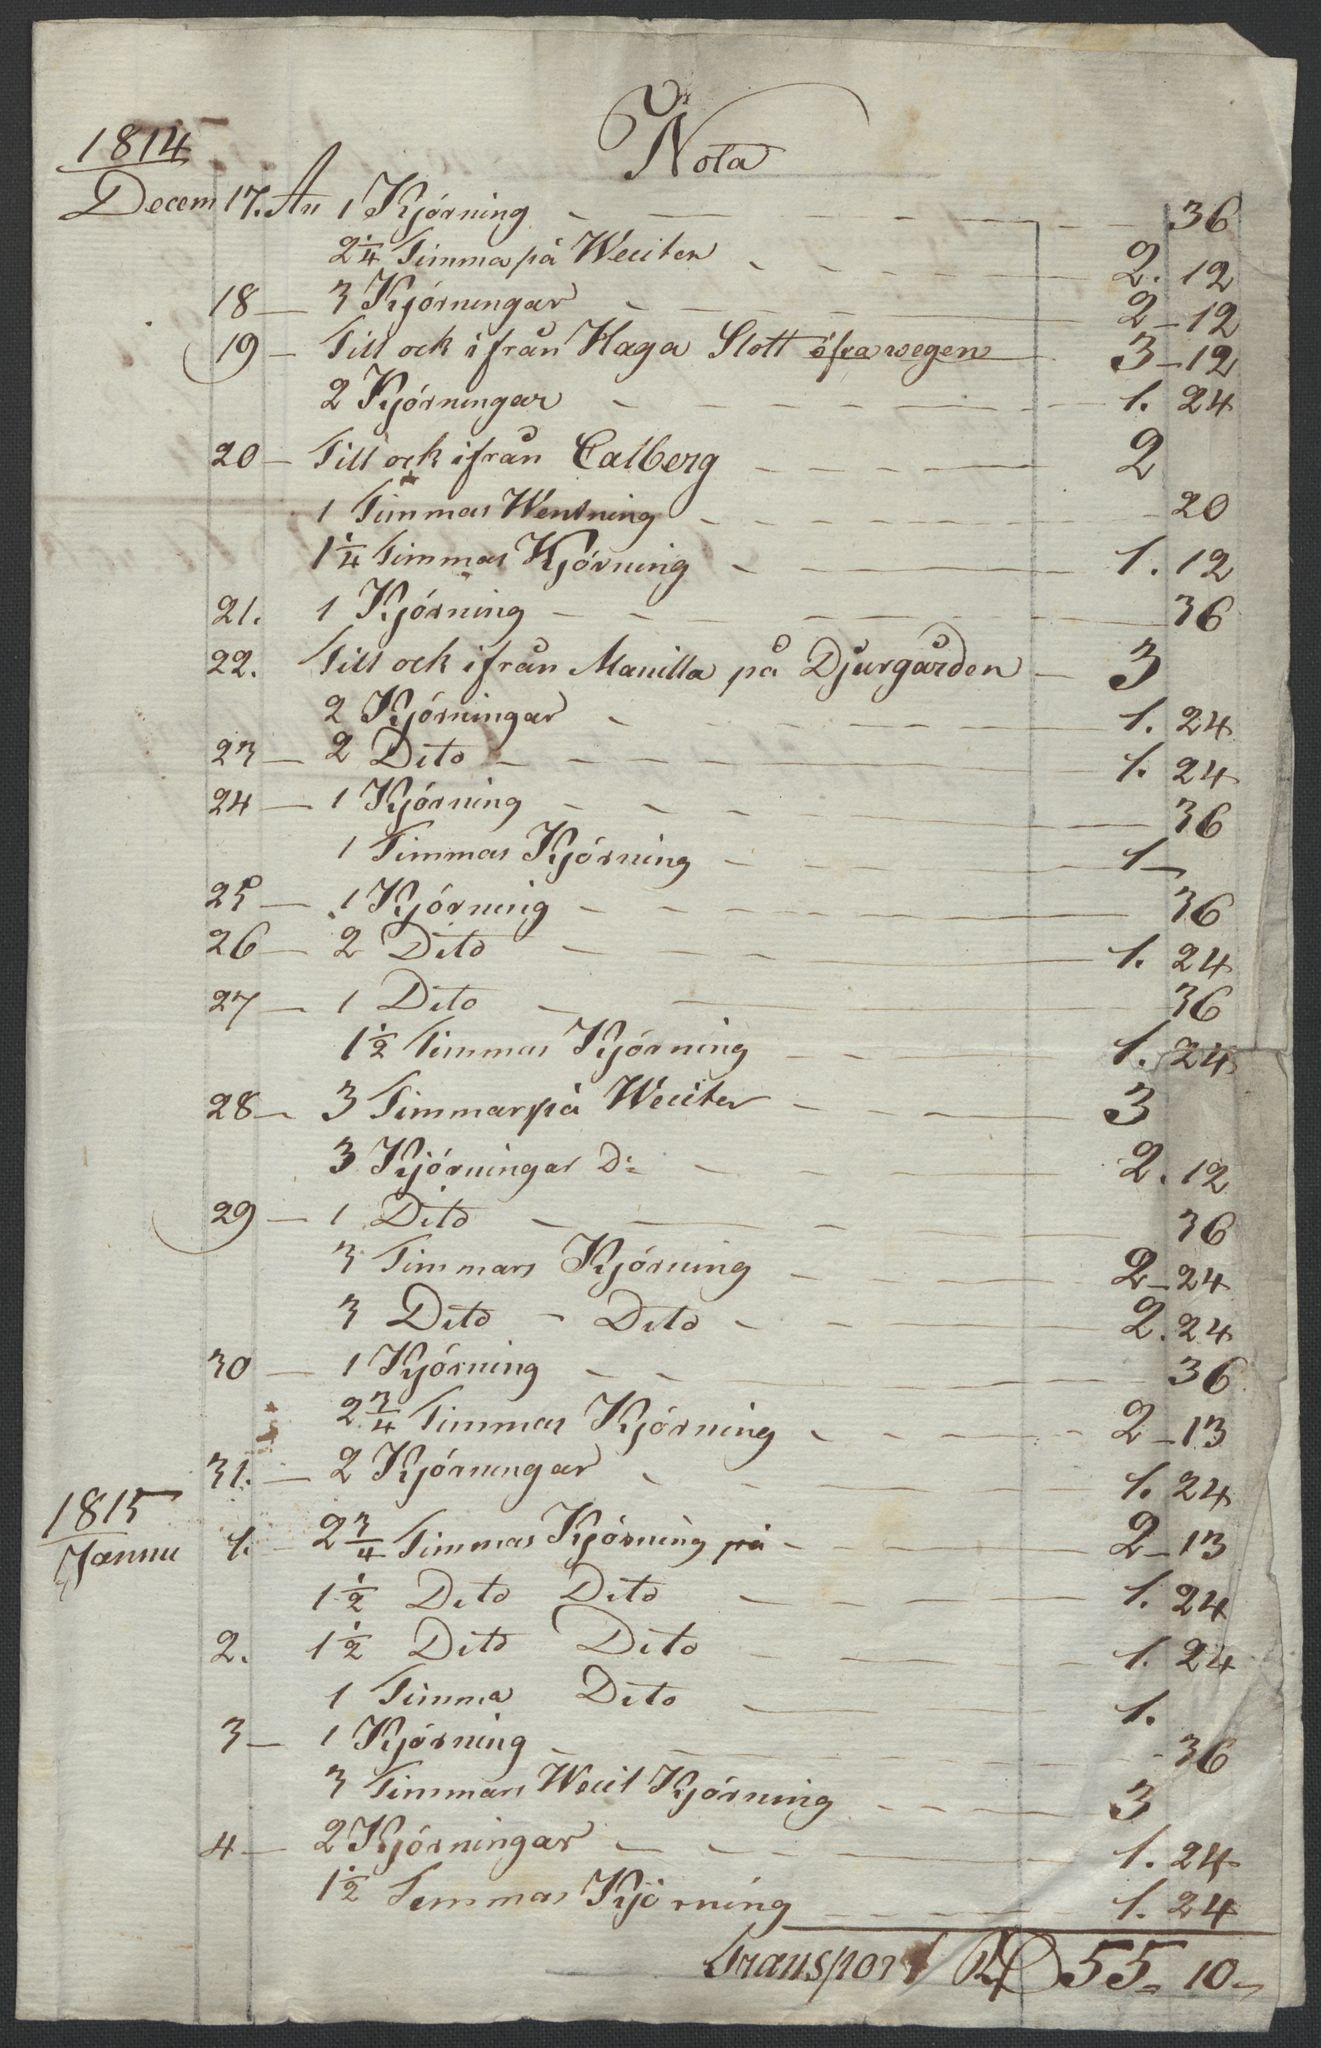 Nota
1814
Decem 17. An 1 Kjörning 36
2 1/4 Timma på Weciten 2. 12
18 3 Kjörningar 2 12
19 Till ock ifrån Haga Slott öfra wegen 3 12
2 Kjörningar 1. 24
20 Till ock ifrån Calberg 2
1 Timmas Wentning 20
1 1/4 Timmas Kjörning 1. 12
21. 1 Kjörning 36
22. Till ock ifrån Manilla på Djurgården 3
2 Kjörningar 1. 24
23 2 Dito 1. 24
24 1 Kjörning 36
1 Timmas Kjörning 1
25 1 Kjörning 36
26 2 Dito 1. 24
27 1 Dito 36
1 1/2 Timmas Kjörning 1. 24
28 3 Timmar på Weciten 3
3 Kjörningar D: 2. 12
29 1 Dito 36
3 Timmars Kjörning 2 24
3 Dito Dito 2. 24
30 1 Kjörning 36
2 3/4 Timmas Kjörning 2 13
31. 2 Kjörningar 1. 24
1815
Jannu 1. 2 3/4 Timmas Kjörning på 2 13
1 1/2 Dito Dito 1. 24
2. 1 1/2 Dito Dito 1. 24
1 Timma Dito 1.
3 1 Kjörning 36
3 Timmars Wecit Kjörning 3
4 2 Kjörningar 1. 24
1 1/2 Temmas Kjörning 1. 24
Transport 55 10